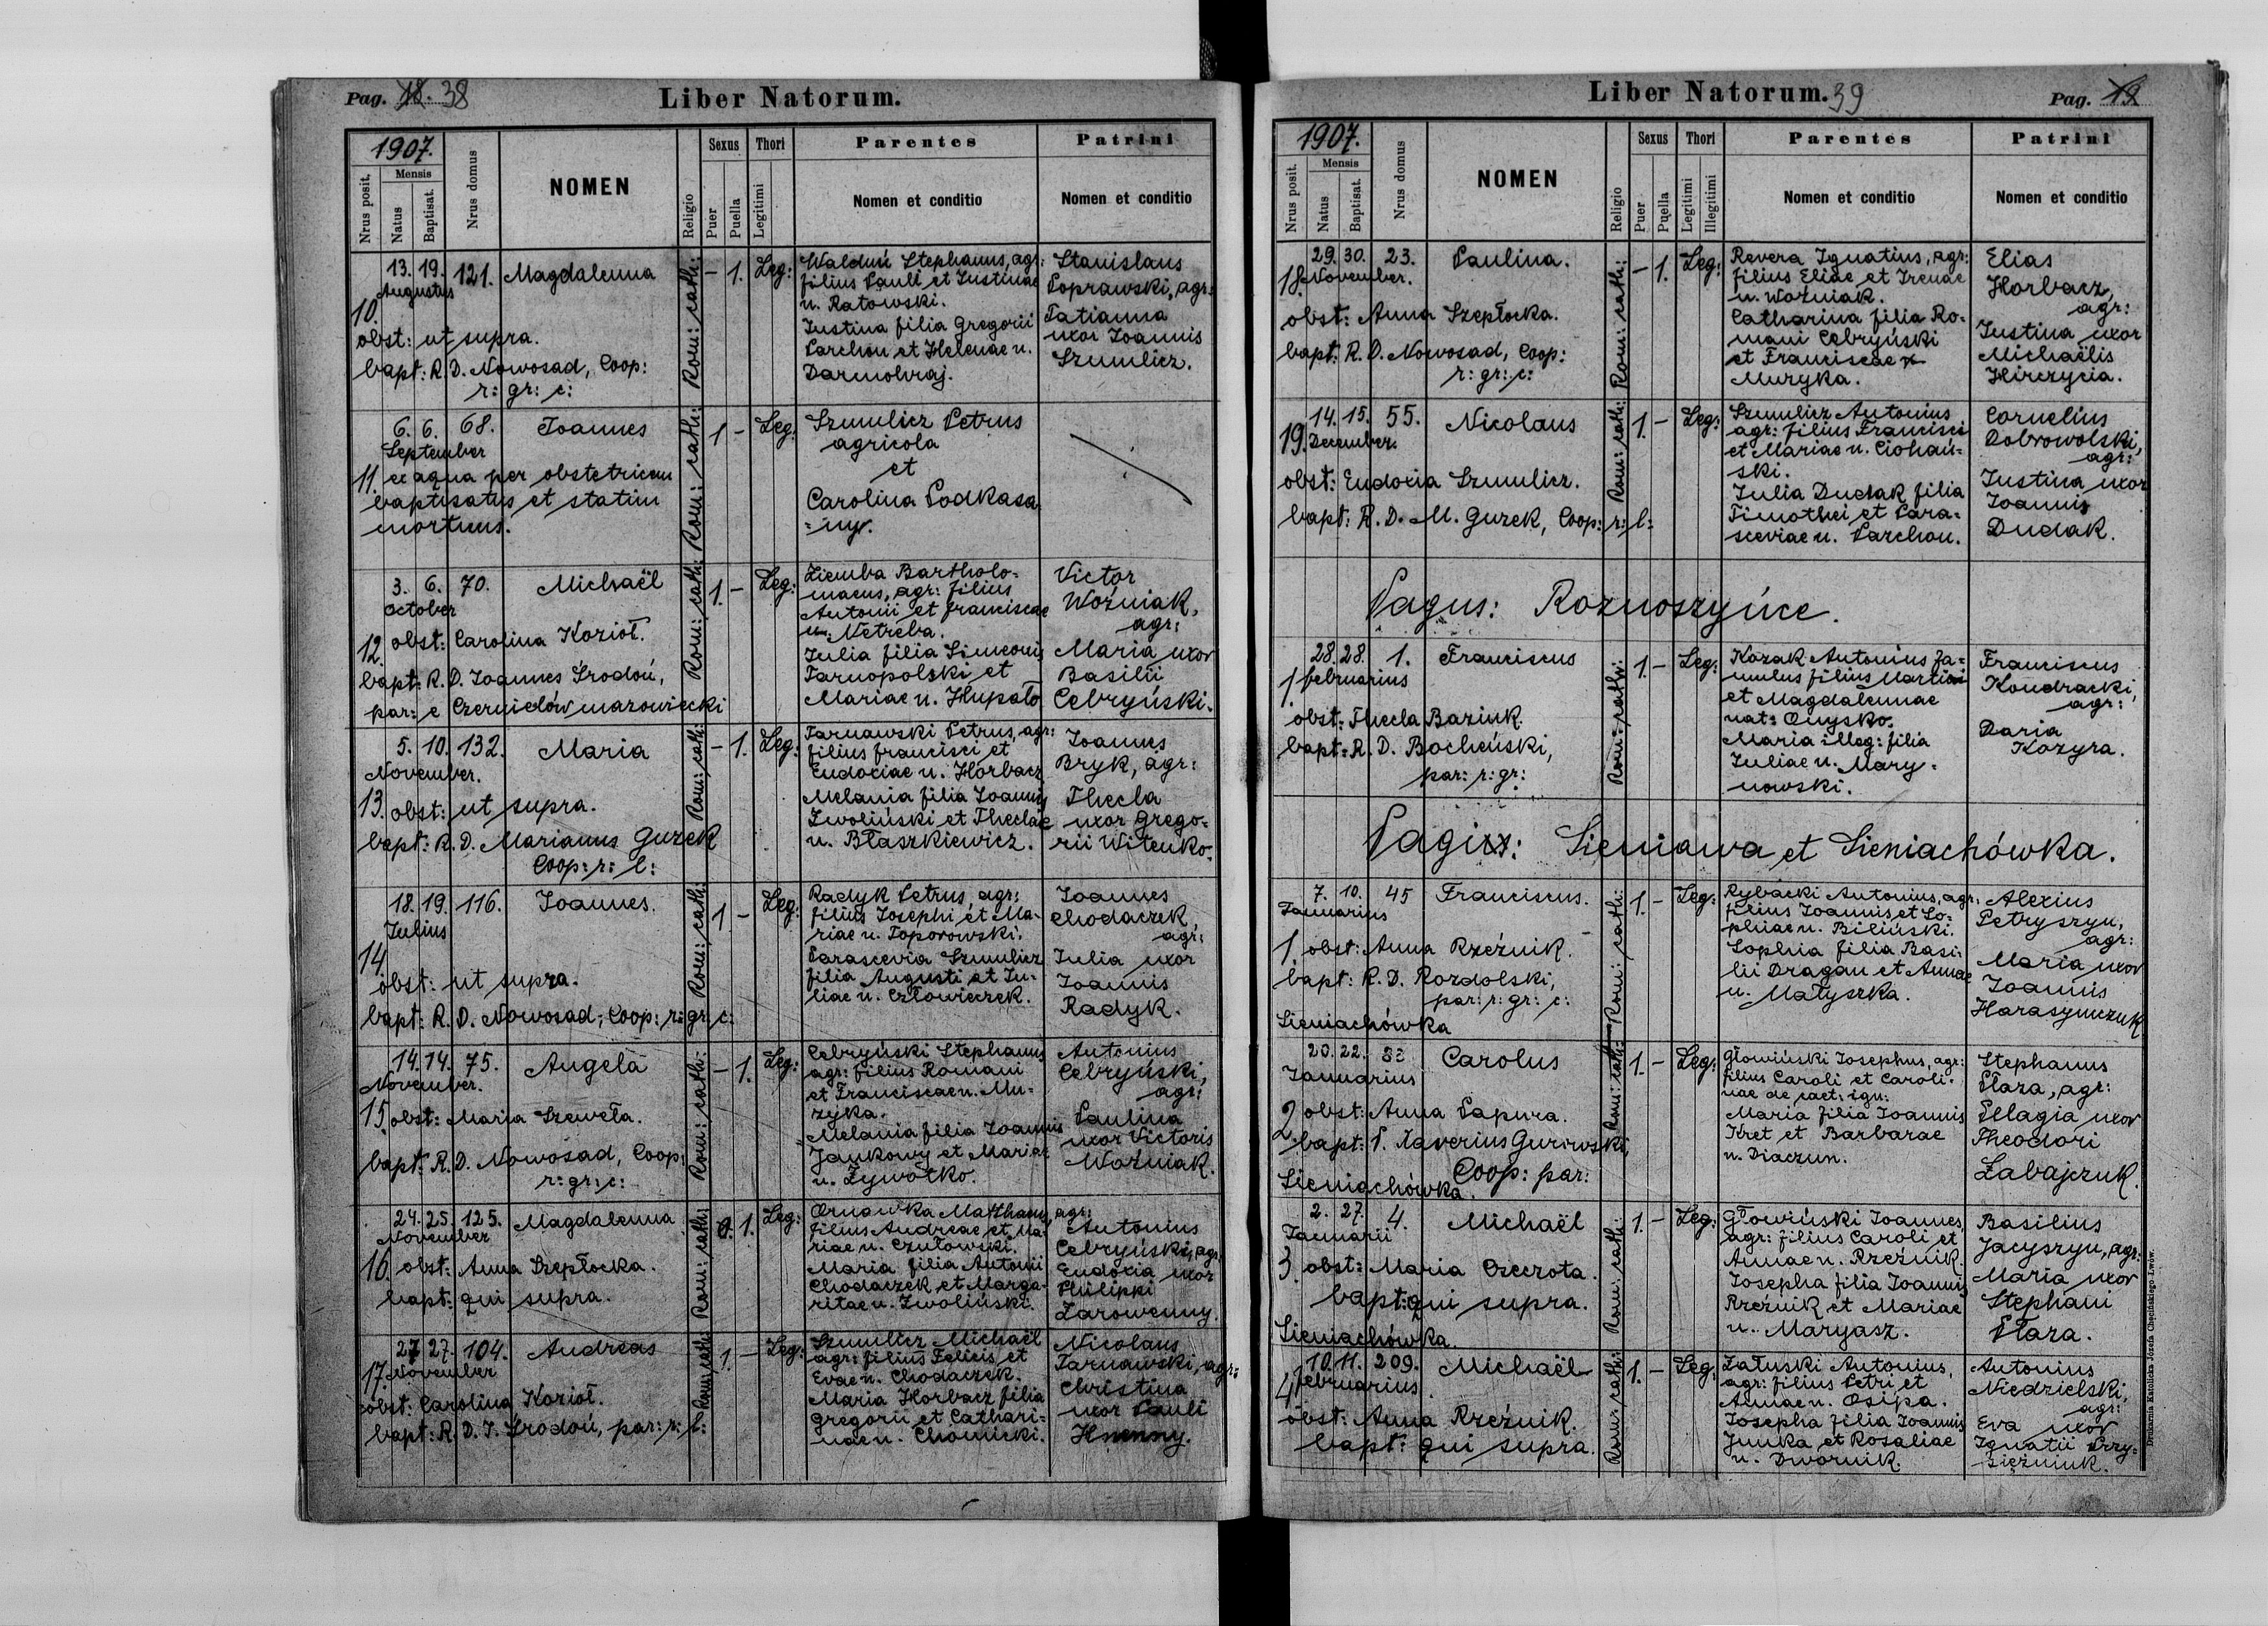 Pag. 18. 38
Liber Natorum.
1907.
Nrus posit.
Mensis
Natus
Baptisat.
Nrus domus
NOMEN
Religio
Sexus
Puer
Puella
Thori
Legitimi
Parentes
Nomen et conditio
Patrini
Nomen et conditio
10.
13. 19. 121. Magdalenna
Augustus
obst: ut supra.
bapt: R. D. Nowosad, Coop:
r: gr: c:
Rom: cath:
- 1. Leg:
Stephanus, agr:
filius Pauli et Justinae
n. Ratowski.
Justina filia Gregorii
Parchon et Helenae n.
Darmohraj.
Stanislaus
Poprawski, agr:
Tatianna
uxor Joannis
Szmulicz.
11.
6. 6. 68. Joannes
September
ex aqua per obstetricem
baptisatus et statim
mortuus.
Rom: cath:
1 - Leg:
Szmulicz Petrus
agricola
et
Carolina Podkasa
=ny.
12.
3. 6. 70. Michaël
October
obst: Carolina Kozioł.
bapt: R. D. Joannes Środoń,
par: e Czernielów mazowiecki
Rom: cath:
1. - Leg:
Ziemba Bartholo=
maeus, agr: filius
Antonii et Franciscae
n. Netreba.
Julia filia Simeonis
Tarnopolski et
Mariae n. Hupało
Victor
Woźniak,
agr:
Maria uxor
Basilii
Cebryński.
13.
5. 10. 132. Maria
November.
obst: ut supra.
bapt: R. D. Marianus Guzek
Coop: r: l:
Rom: cath:
- 1. Leg:
Tarnawski Petrus, agr:
filius Francisci et
Eudoxiae n. Horbacz
Melania filia Joannis
Zwoliński et Theclae
n. Błaszkiewicz.
Joannes
Bryk, agr:
Thecla
uxor Grego=
rii Witenko.
14.
18. 19. 116. Joannes.
Julius
obst: ut supra.
bapt: R. D. Nowosad, Coop: r: gr: c:
Rom: cath:
1 - Leg:
Radyk Petrus, agr:
filius Josephi et Ma-
riae n. Toporowski.
Parascevia Szmulicz
filia Augusti et Ju-
liae n. Człowieczek.
Joannes
Chodaczek,
agr:
Julia uxor
Joannis
Radyk.
15.
14. 14. 75. Angela
November.
obst: Maria Szeweła.
bapt: R. D. Nowosad, Coop:
r: gr: c:
Rom: cath:
- 1. Leg:
Cebryński Stephanus
agr: filius Romani
et Franciscae n. Mu-
zyka.
Melania filia Joannis
Jankowy et Mariae
n. Żywotko.
Antonius
Cebryński,
agr:
Paulina
uxor Victoris
Woźniak.
16.
24. 25. 125. Magdalenna
November
obst: Anna Szepłocka.
bapt: qui supra.
Rom: cath:
1. Leg:
Ornawka Matthaeus, agr:
filius Andreae et Ma-
riae n. Czutowski.
Maria filia Antonii
Chodaczek et Marga-
ritae n. Zwoliński.
Antonius
Cebryński, agr:
Eudoxia uxor
Philippi
Zarowenny.
17.
27. 27. 104. Andreas
November
obst: Carolina Kozioł.
bapt: R. D. J. Środoń, par: r: l:
Rom: cath:
1. - Leg:
Szmulicz Michaël
agr: filius Felicis et
Evae n. Chodaczek.
Maria Horbacz filia
Gregorii et Cathari=
nae n. Chomicki.
Nicolaus
Tarnawski, agr:
Christina
uxor Pauli
Liber Natorum. 39
Pag. 19
1907.
Nrus posit.
Mensis
Natus
Baptisat.
Nrus domus
NOMEN
Religio
Sexus
Puer
Puella
Thori
Legitimi
Illegitimi
Parentes
Nomen et conditio
Patrini
Nomen et conditio
18.
29. 30. 23. Paulina.
November.
obst: Anna Szepłocka.
bapt: R. D. Nowosad, Coop:
r: gr: c:
Rom: cath:
- 1. Leg:
Revera Ignatius, agr:
filius Eliae et Irenae
n. Woźniak.
Catharina filia Ro=
mani Cebryński
et Franciscae
Muzyka.
Elias
Horbacz,
agr:
Justina uxor
Michaëlis
Hirczycia.
19.
14. 15. 55. Nicolaus
December.
obst: Eudoxia Szmulicz.
bapt: R. D. M. Guzek, Coop: r: l:
Rom: cath:
1. - Leg:
Szmulicz Antonius
agr: filius Francisci
et Mariae n. Ciohań=
ski.
Julia Dudak filia
Timothei et Para=
sceviae n. Parchon.
Cornelius
Dobrowolski,
agr:
Justina uxor
Joannis
Dudak.
Pagus: Roznoszyńce.
1.
28. 28. 1. Franciscus
Februarius
obst: Thecla Baziuk.
bapt: R. D. Bocheński,
par: r: gr:
Rom: cath:
1. - Leg:
Kozak Antonius fa=
mulus filius Martini
et Magdalennae
nat: Onysko.
Maria illeg: filia
Juliae n. Mary=
nowski.
Franciscus
Kondracki,
agr:
Daria
Kozyra.
Pagi: Sieniawa et Sieniachówka.
1.
7. 10. 45 Franciscus.
Januarius
obst: Anna Rzeźnik.
bapt: R. D. Rozdolski,
par: r: gr: c:
Sieniachówka
Rom: cath:
1. - Leg:
Rybacki Antonius, agr:
filius Joannis et So-
phiae n. Biliński.
Sophia filia Basi-
lii Dragan et Annae
n. Matyszka.
Alexius
Petryszyn,
agr:
Maria uxor
Joannis
Harasymczuk
2.
20. 22. Carolus
Januarius
obst: Anna Sapura.
bapt: P. Xaverius Gurowski,
Coop: par:
Sieniachówka.
Rom: cath:
1. - Leg:
Głowiński Josephus, agr:
filius Caroli et Caroli-
nae de caet: ign:
Maria filia Joannis
Kret et Barbarae
n. Diaczun.
Stephanus
Płaza, agr:
Pelagia uxor
Theodori
Zabajczuk.
3.
2. 27. 4. Michaël
Januarii
obst: Maria Czeczota.
bapt: qui supra.
Sieniachówka.
Rom: cath:
1. - Leg:
Głowiński Joannes,
agr: filius Caroli et
Annae n. Rzeźnik.
Josepha filia Joannis
Rzeźnik et Mariae
n. Maryasz.
Basilius
Jacyszyn, agr:
Maria uxor
Stephani
Płaza.
4.
10. 11. 209. Michaël
Februarius
obst: Anna Rzeźnik.
bapt: qui supra.
Rom: cath:
1. - Leg:
Załuski Antonius,
agr: filius Petri et
Annae n. Osipa.
Josepha filia Joannis
Junka et Rosaliae
n. Dwornik.
Antonius
Niedzielski,
agr:
Eva uxor
Ignatii Przy=
siężniuk.
Drukarnia Katolicka Józefa Chęcińskiego Lwów.